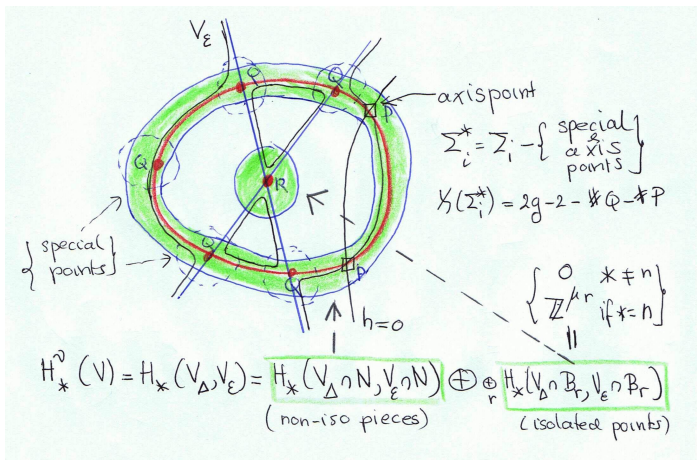 V_ε
Q
Q
P
axispoint
Σ_i^* = Σ_i - { special & axis points }
Q
R
χ(Σ_i^*) = 2g-2-#Q-#P
{ special points }
Q
Q
P
h=0
{ 0 * ≠ n
ℤ^{μ_r} if * = n }
||
H̃_*(V) = H_*(V_Δ, V_ε) = H_*(V_Δ∩N, V_ε∩N) ⊕ ⊕_r H_*(V_Δ∩B_r, V_ε∩B_r)
(non-iso pieces) (isolated points)